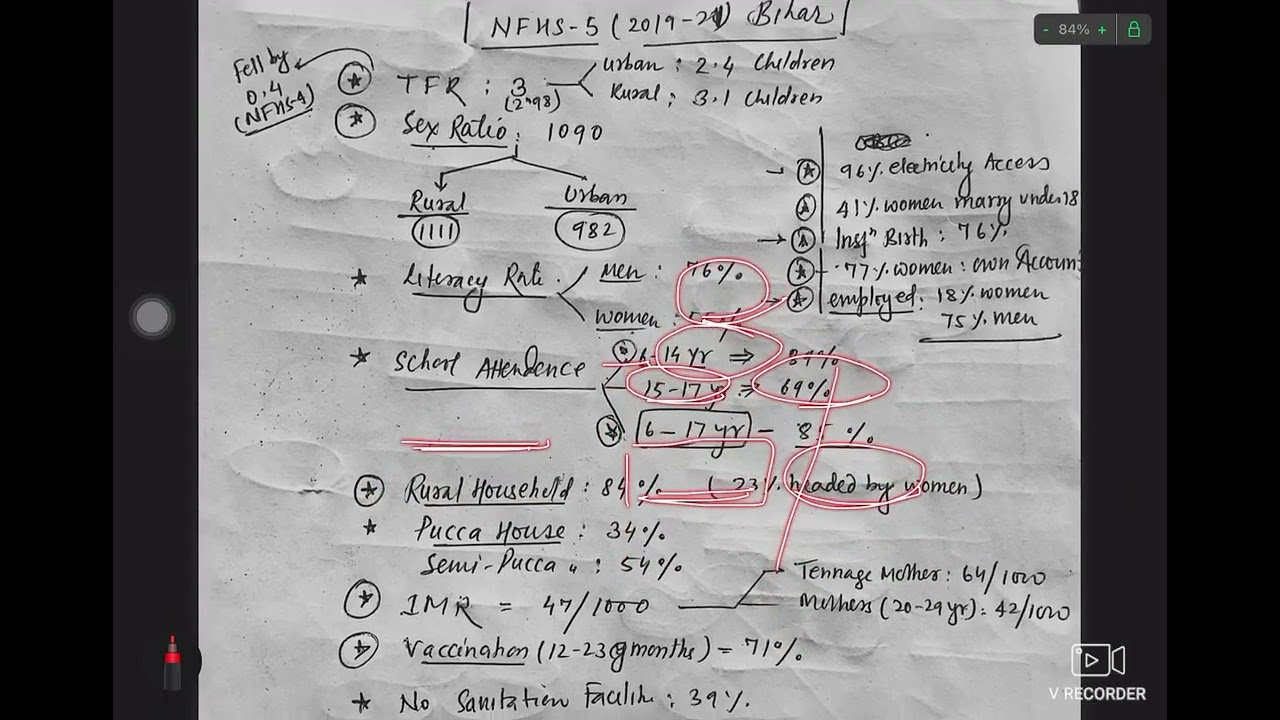 NFHS-5 (2019-21) Bihar
- 84% +
Fell by
0.4
(NFHS-4)
TFR : 3
(2.98)
Urban : 2.4 Children
Rural : 3.1 Children
Sex Ratio : 1090
Rural
1111
Urban
982
96% electricity Access
41% women marry under 18
Insn Birth : 76%
77% women : own Account
employed : 18% women
75% men
Literacy Rate
Men : 76%
Women :
School Attendence
14 yr ⇒
15-17 y ⇒ 69%
6-17 yr - 85%
Rural Household : 84% (23% headed by women)
Pucca House : 34%
Semi-Pucca " : 54%
IMR = 47/1000
Tennage Mother : 64/1000
Mothers (20-29 yr) : 42/1000
Vaccination (12-23 months) = 71%
No Sanitation Facilite : 39%.
V RECORDER